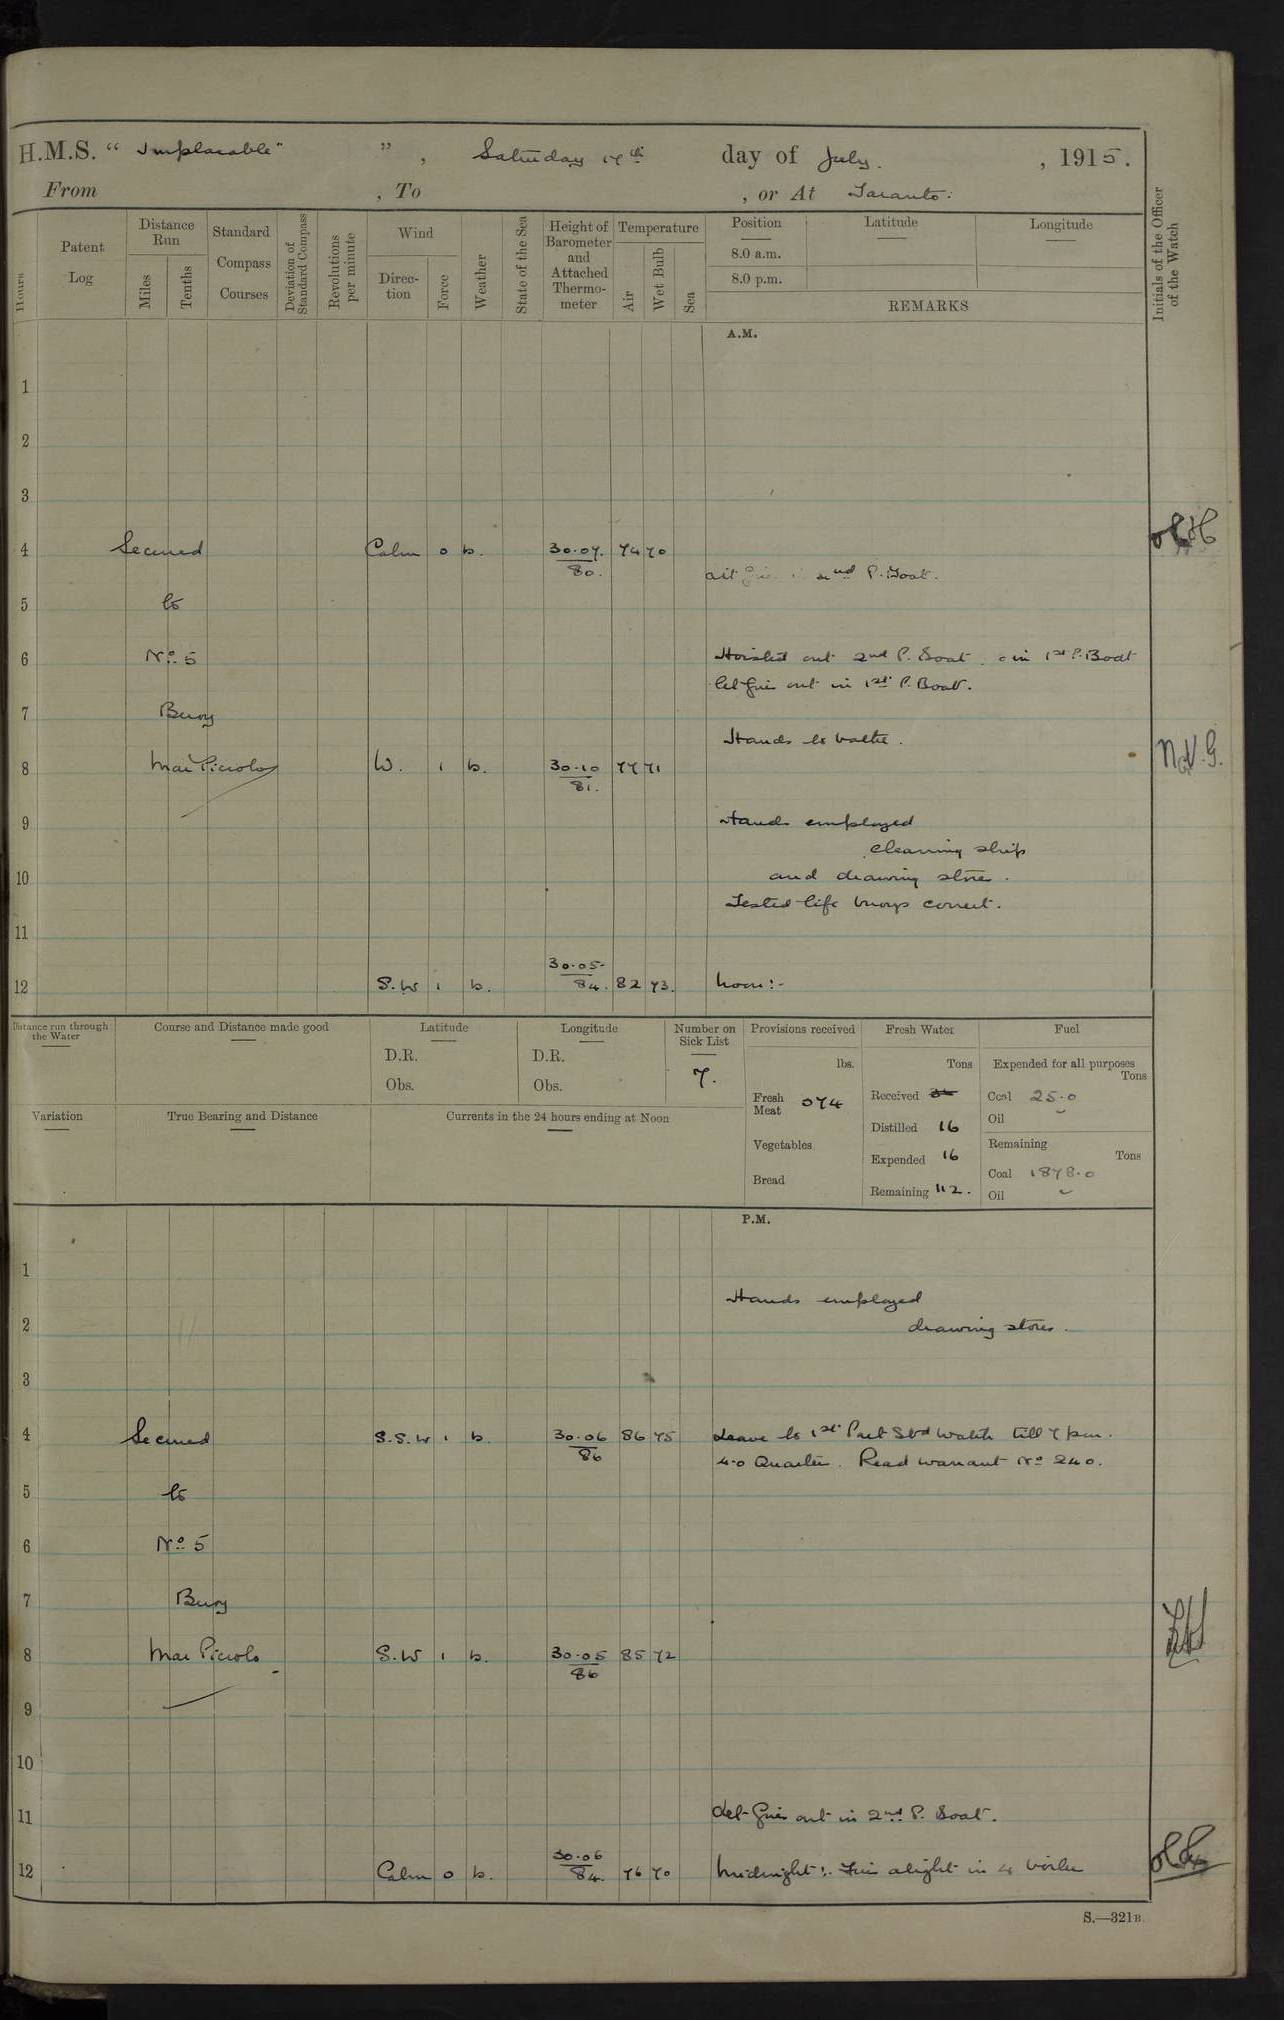 H.M.S. " Implacable" ", Saturday 17th day of July. , 1915.
From , To , or At Taranto:
Hours
Patent Log
Distance Run
Miles
Tenths
Standard Compass Courses
Deviation of Standard Compass
Revolutions per minute
Wind
Direction
Force
Weather
State of the Sea
Height of Barometer and Attached Thermometer
Temperature
Air
Wet Bulb
Sea
Position
8.0 a.m.
8.0 p.m.
Latitude
Longitude
REMARKS
Initials of the Officer of the Watch
A.M.
1
2
3
4 Secured Calm 0 b. 30.07. 74 70
80.
2nd P. Boat.
5 to
6 No. 5 Hoisted out 2nd P. Boat. in 1st P. Boat
let fires out in 1st P. Boat.
7 Buoy
Hands to bathe.
8 Mar Piccolo W. 1 b. 30.10 77 71 N.V.G.
81.
9 Hands employed
cleaning ship
10 and drawing stores.
Tested life buoys correct.
11
30.05
12 S.W 1 b. 84. 82 73. Noon:-
Distance run through the Water
Course and Distance made good
Latitude
D.R.
Obs.
Longitude
D.R.
Obs.
Number on Sick List
7.
Provisions received
lbs.
Fresh Meat 074
Vegetables
Bread
Fresh Water
Tons
Received
Distilled 16
Expended 16
Remaining 112.
Fuel
Expended for all purposes
Tons
Coal 25.0
Oil
Remaining
Tons
Coal 1878.0
Oil
Variation
True Bearing and Distance
Currents in the 24 hours ending at Noon
P.M.
1
Hands employed
2 drawing stores.
3
4 Secured S.S.W 1 b. 30.06 86 75 Leave to 1st Part Stbd Watch till 7 pm.
86
4.0 Quarters. Read warrant No. 240.
5 to
6 No. 5
7 Buoy
8 Mar Piccolo S.W 1 b. 30.05 85 72
86
9
10
11 Let fires out in 2nd P. Boat.
30.06
12 Calm 0 b. 84. 76 70 Midnight:- Fires alight in 4 boilers
S.—321B.